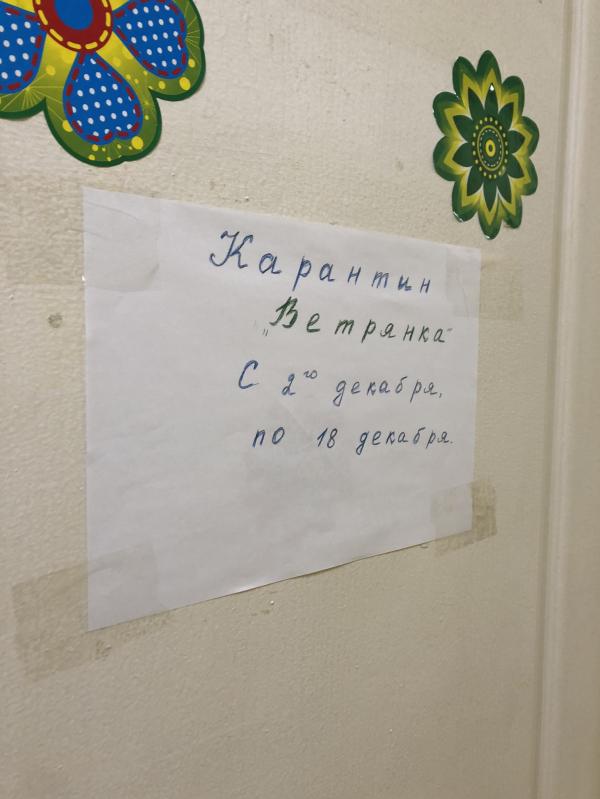 Карантин
„Ветрянка"
С 2го декабря,
по 18 декабря.